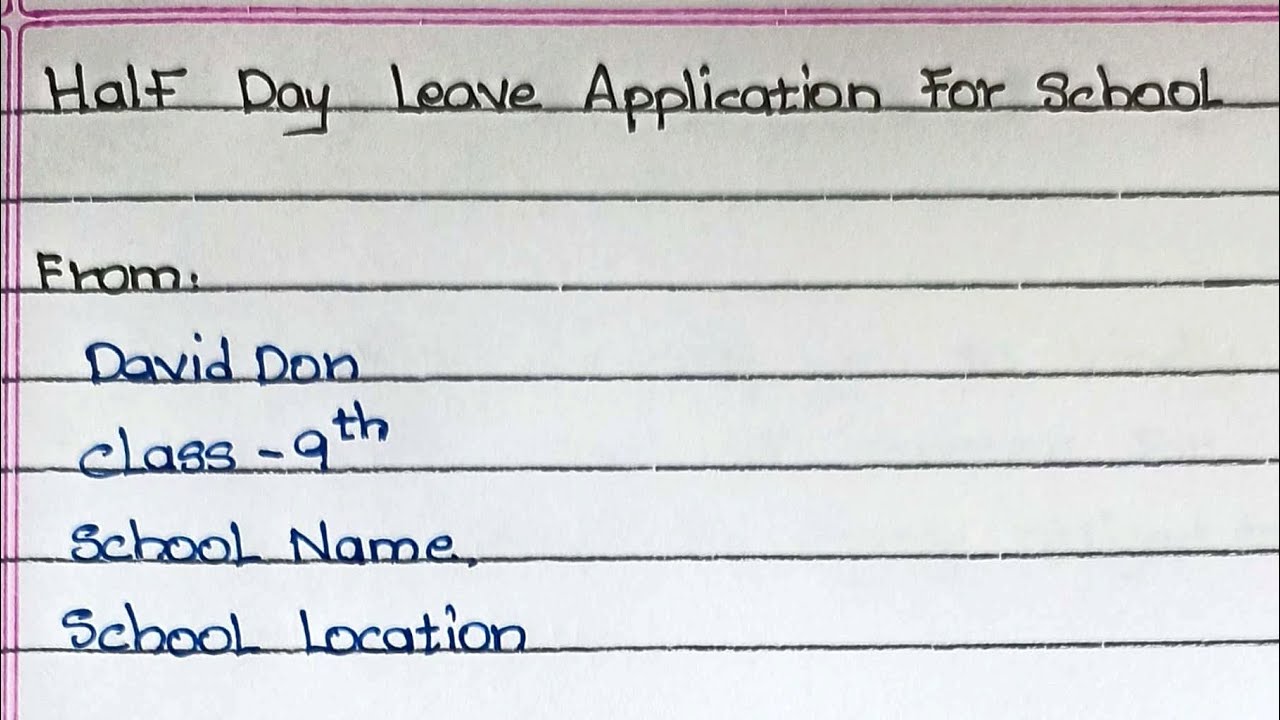 Half Day Leave Application For School
From:
David Don
Class - 9th
School Name,
School Location